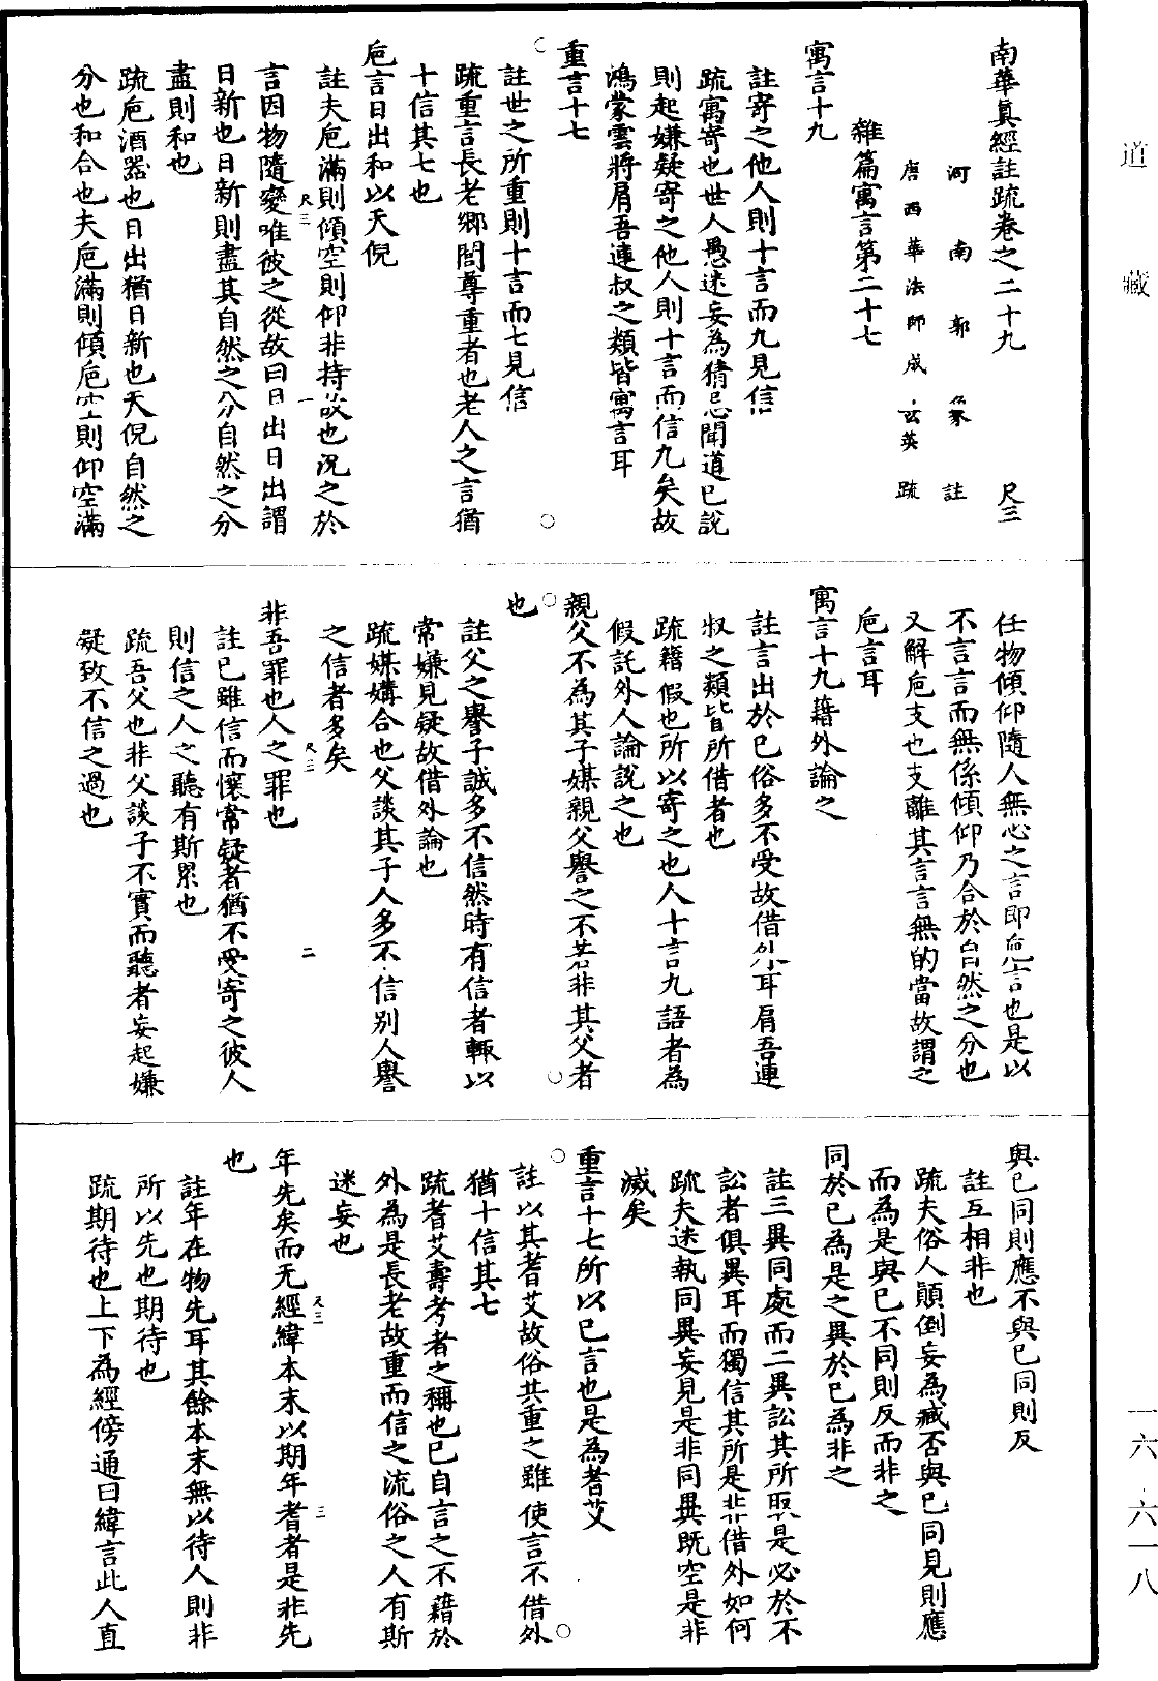 道藏
南華真經註疏卷之二十九 尺三
河南郭象註
唐西華法師成玄英疏
雜篇寓言第二十七
寓言十九
註寄之他人則十言而九見信
疏寓寄也世人愚迷妄為猜忌聞道已說
則起嫌疑寄之他人則十言而信九矣故
鴻蒙雲將肩吾連叔之類皆寓言耳
重言十七
註世之所重則十言而七見信
疏重言長老鄉閭尊重者也老人之言猶
十信其七也
巵言日出和以天倪
註夫巵滿則傾空則仰非持故也況之於
言因物隨變唯彼之從故曰日出日出謂
日新也日新則盡其自然之分自然之分
盡則和也
疏巵酒器也日出猶日新也天倪自然之
分也和合也夫巵滿則傾巵空則仰空滿
尺三 一
任物傾仰隨人無心之言即巵言也是以
不言言而無係傾仰乃合於自然之分也
又解巵支也支離其言言無的當故謂之
巵言耳
寓言十九藉外論之
註言出於己俗多不受故借外耳肩吾連
叔之類皆所借者也
疏藉假也所以寄之也人十言九語者為
假託外人論說之也
親父不為其子媒親父譽之不若非其父者
也
註父之譽子誠多不信然時有信者輒以
常嫌見疑故借外論也
疏媒媾合也父談其子人多不信別人譽
之信者多矣
非吾罪也人之罪也
註已雖信而懷常疑者猶不受寄之彼人
則信之人之聽有斯累也
疏吾父也非父談子不實而聽者妄起嫌
疑致不信之過也
尺三 二
與已同則應不與已同則反
註互相非也
疏夫俗人顛倒妄為臧否與已同見則應
而為是與已不同則反而非之
同於已為是之異於已為非之
註三異同處而二異訟其所取是必於不
訟者俱異耳而獨信其所是非借外如何
疏夫迷執同異妄見是非同異既空是非
滅矣
重言十七所以已言也是為耆艾
註以其耆艾故俗共重之雖使言不借外
猶十信其七
疏耆艾壽考者之稱也已自言之不藉於
外為是長老故重而信之流俗之人有斯
迷妄也
年先矣而无經緯本末以期年耆者是非先
也
註年在物先耳其餘本末無以待人則非
所以先也期待也
疏期待也上下為經傍通曰緯言此人直
尺三 三
一六-六一八